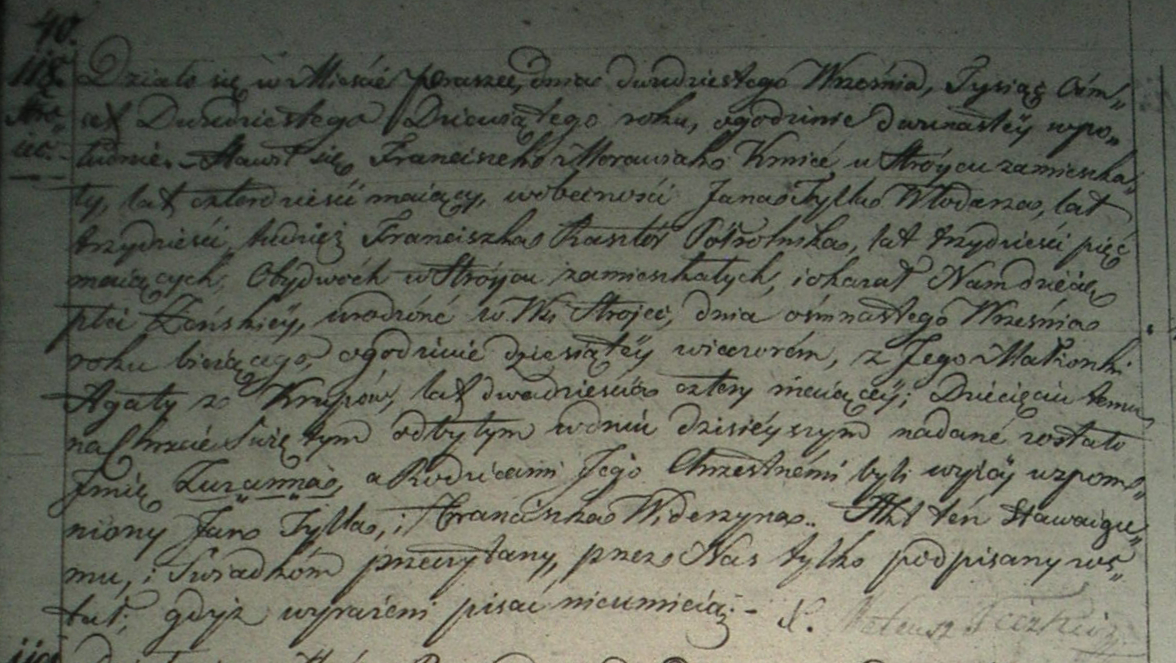 40.
118. Działo się w Mieście Praszce, dnia dwudziestego Września, Tysiąc Ośm„
Stro„ set Dwudziestego Dziewiątego roku, o godzinie dwunastéy w po„
iec. łudnie. Stawił się Franciszek Morawiak Kmieć w Stróycu zamieszka„
ły, lat czterdzieści maiący, w obecności Jana Tylla Włodarza, lat
trzydzieści, tudzież Franciszka Półrolnika, lat trzydzieści pięć
maiących, Obydwóch w Stróycu zamieszkałych, i okazał Nam dziecię
płci Żeńskiéy, urodzóné w Wsi Strojcu, dnia ośmnastego Września
roku bieżącego, o godzinie dziesiątéy wieczorém, z Jego Małżonki
Agaty z Krupów, lat dwadzieścia cztery maiącéy; Dziecięciu temu
na Chrzcie Swiętym odbytym w dniu dzisiéyszym nadané zostało
Jmię Zuzanna, a Rodzicami Jego Chrzestnémi byli wyżéy wzpom„
niony Jan Tylla, i Franciszka. Akt ten stawaiące„
mu, i Swiadkóm przeczytany, przez Nas tylko podpisany zos„
tał, gdyż wyrażeni pisać nieumieią. X. Mateusz